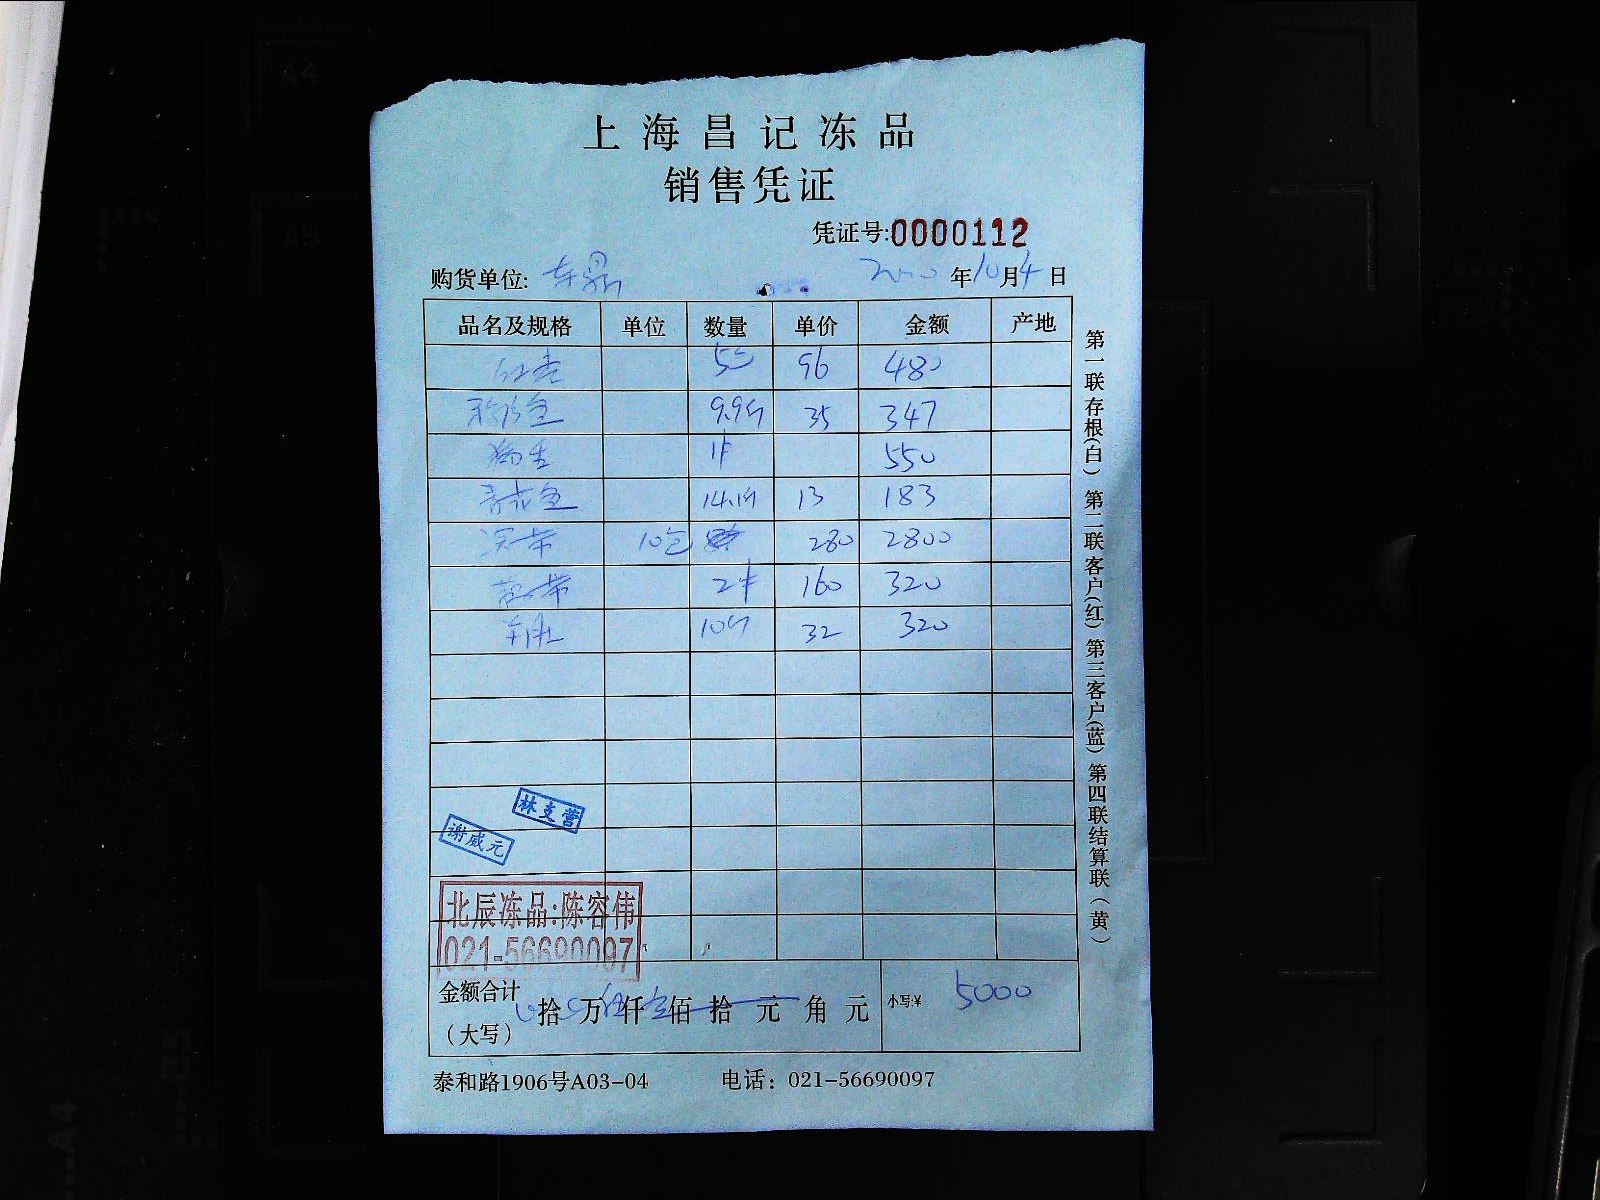 上海昌记冻品
销售凭证
凭证号:0000112
购货单位: 年10月4日
品名及规格 单位 数量 单价 金额 产地
96 480
9.9斤 35 347
1件 550
14.1斤 13 183
10包 280 2800
2件 160 320
羊肚 10斤 32 320
林支营
谢威元
北辰冻品:陈容伟
021-56690097
金额合计 拾 万 仟 佰 拾 元 角 元 小写:¥ 5000
（大写）
泰和路1906号A03-04 电话：021-56690097
第一联存根(白) 第二联客户(红) 第三客户(蓝) 第四联结算联(黄)
A4
A5